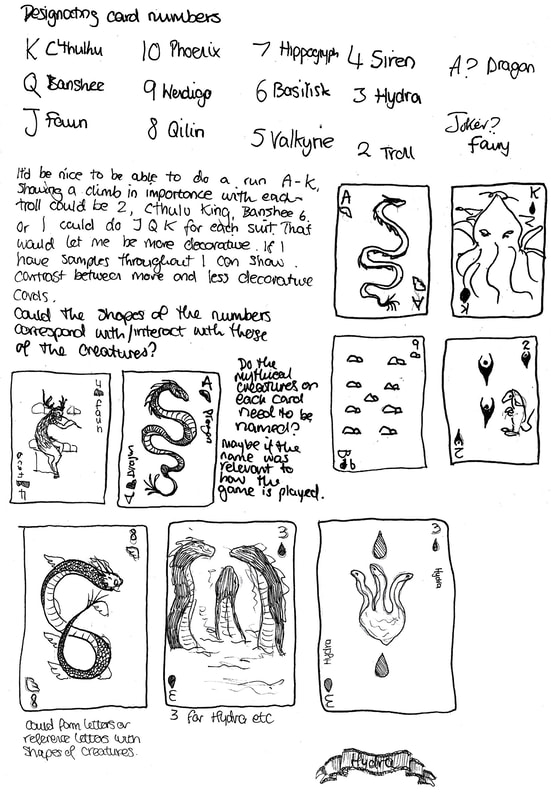 Designating card numbers
K Cthulhu
Q Banshee
J Faun
10 Phoenix
9 Wendigo
8 Qilin
7 Hippogryph
6 Basilisk
5 Valkyrie
4 Siren
3 Hydra
2 Troll
A? Dragon
Joker?
Fairy
It'd be nice to be able to do a run A-K,
showing a climb in importance with each
troll could be 2, Cthulu King, Banshee 6.
Or I could do J Q K for each suit. That
would let me be more decorative. If I
have samples throughout I can show
contrast between more and less decorative
cards.
Could the shapes of the numbers
correspond with/interact with these
of the creatures?
A
A
K
K
9
9
2
2
Do the
mythical
creatures on
each card
need to be
named?
maybe if the
name was
relevant to
how the
game is played.
4
faun
4
A
Dragon
A
8
8
3
3
3
Hydra
Hydra
3
Could form letters or
reference letters with
shapes of creatures.
3 for Hydra etc
Hydra